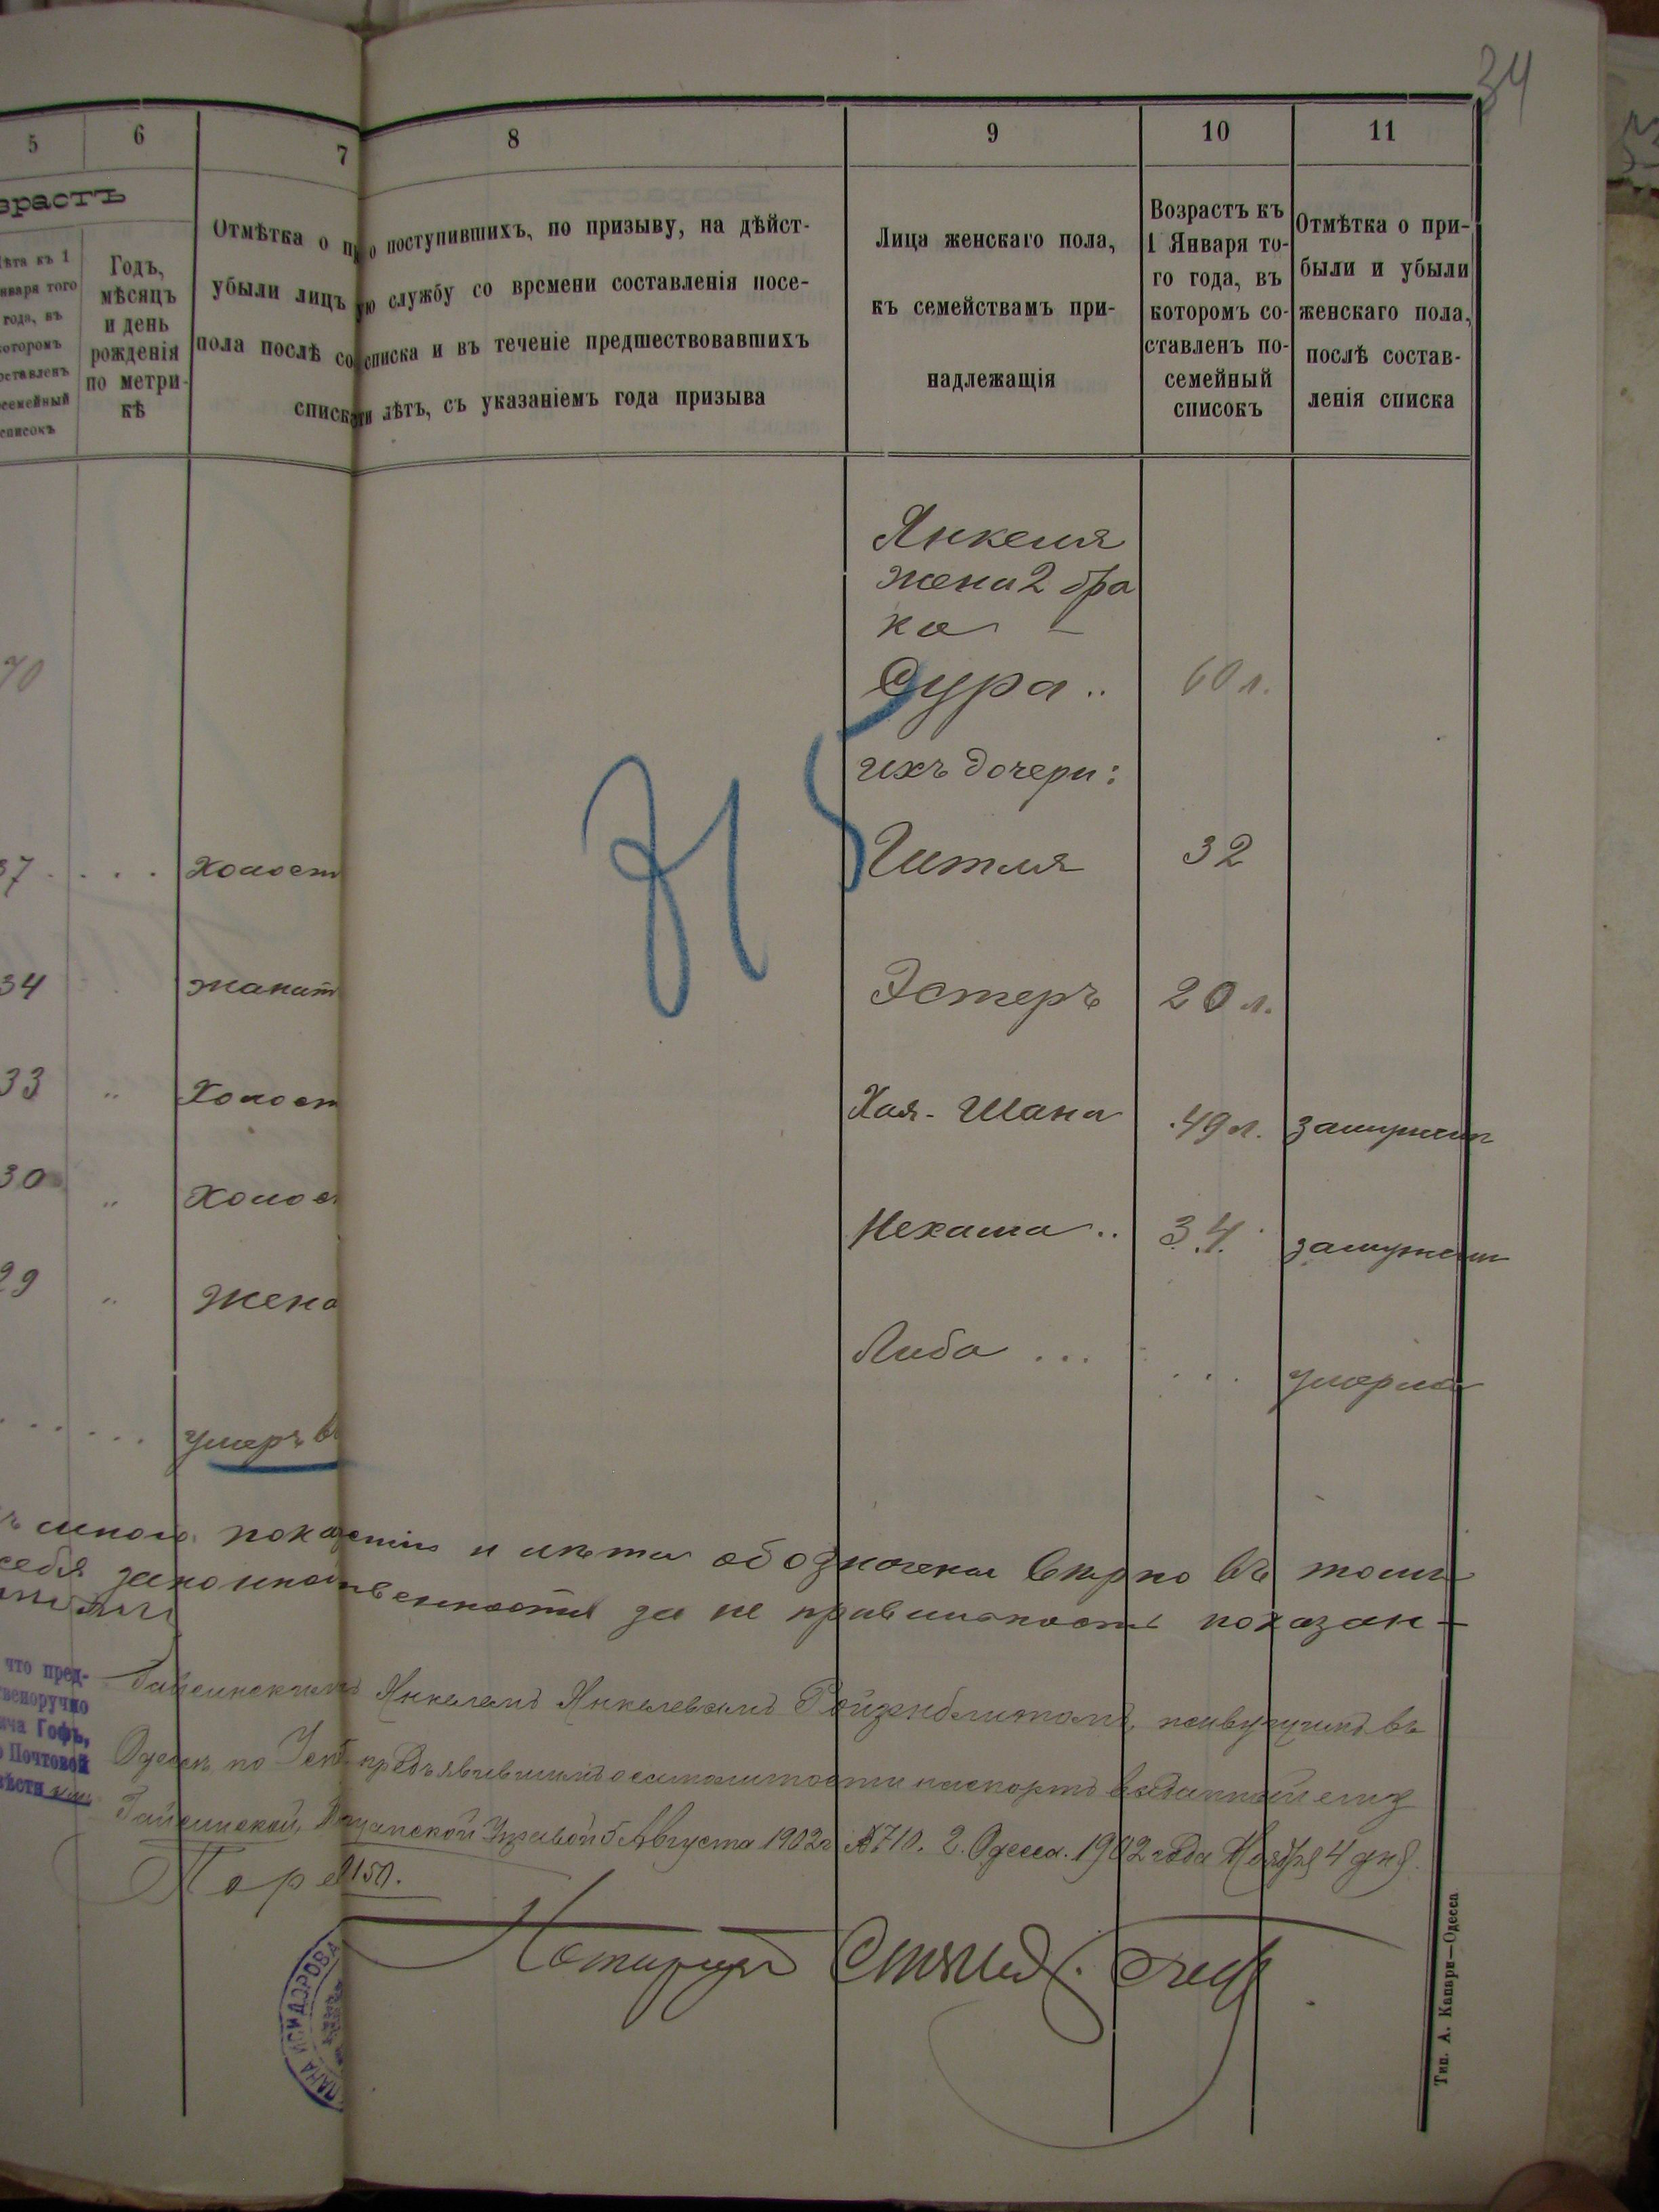 34
5
6
7
8
9
10
11
зрастъ
Лѣта къ 1
января того
года, въ
которомъ
составленъ
посемейный
списокъ
Годъ,
мѣсяцъ
и день
рожденія
по метри-
кѣ
Отмѣтка о п
убыли лицъ
пола послѣ со
списка
о поступившихъ, по призыву, на дѣйст-
ую службу со времени составленія посе-
списка и въ теченіе предшествовавшихъ
ти лѣтъ, съ указаніемъ года призыва
Лица женскаго пола,
къ семействамъ при-
надлежащія
Возрастъ къ
1 Января то-
го года, въ
которомъ со-
ставленъ по-
семейный
списокъ
Отмѣтка о при-
были и убыли
женскаго пола,
послѣ состав-
ленія списка
Янкеля
жена 2 бра
ка –
70
Сура .. 60 л.
ихъ дочери:
37 . . . . Холост
Гитля 32
34 женат
Эстеръ 20 л.
33 .. Холост
Хая-Шана 49 л. замужем
30 .. Холос
Нехама .. 34. замужем
29 .. Жена
Либа ... ... умерла
. . . . . умеръ въ
и лѣта обозначены вѣрно въ томъ
себя за не правильность показан-
что пред-
твеноручно
ича Гофъ,
Почтовой
Гайсинскимъ Янкелемъ Янкелевымъ Ройзенблитомъ, живущимъ въ
Одессѣ, по предъявившимъ о самоличности паспортъ выданный ему
Гайсинской Мѣщанской Управой 5 Августа 1902 г. № 710. Г. Одесса. 1902 года Ноября 4 дня.
150.
Нотаріусъ
ПАНА ИСИДОРОВА
Тип. А. Капари—Одесса